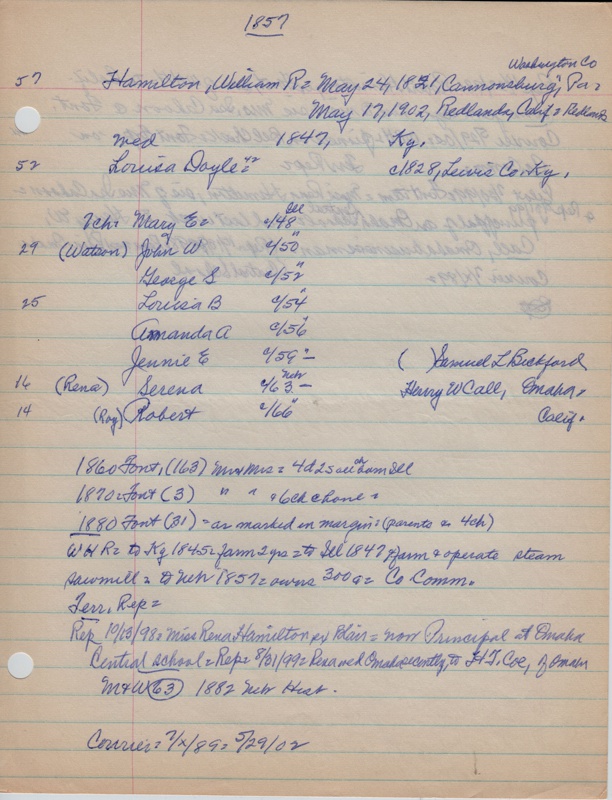 1857
Washington Co
57 Hamilton, William R = May 24, 1821, Cannonsburg, Pa =
May 17, 1902, Redlands, Calif = Redlands
med 1847, Ky.
52 Louisa Doyle = "42 c1828, Lewis Co. Ky.
7ch = Mary E = c/48 Ill
29 (Watson) John W c/50 "
George S c/52 "
25 Louisa B c/54 "
Amanda A c/56 "
Jennie E c/59 = ( ) Samuel L Bickford
16 (Rena) Serena c/63 Neb = Harry W Call, Omaha,
14 (Roy) Robert c/66 " Calif.
1860 Font, (163) Mr & Mrs = 4d 2s all ch born Ill
1870 = Font (3) " " = 6 ch
1880 Font (31) = as marked on margin = (parents & 4ch)
W H R = to Ky 1845 = farm 2 yrs = to Ill 1847 = farm & operate steam
sawmill = to Neb 1857 = owns 300a = Co Comm.
Terr, Rep =
Rep 19/13/98 = Miss Rena Hamilton ex Blair = now Principal at Omaha
Central school = Rep = 8/31/99 = Rena wed Omaha recently, to H T. Coe, of Omaha
M & W (63) 1882 Neb Hist.
Courier = 7/x/89 = 5/29/02